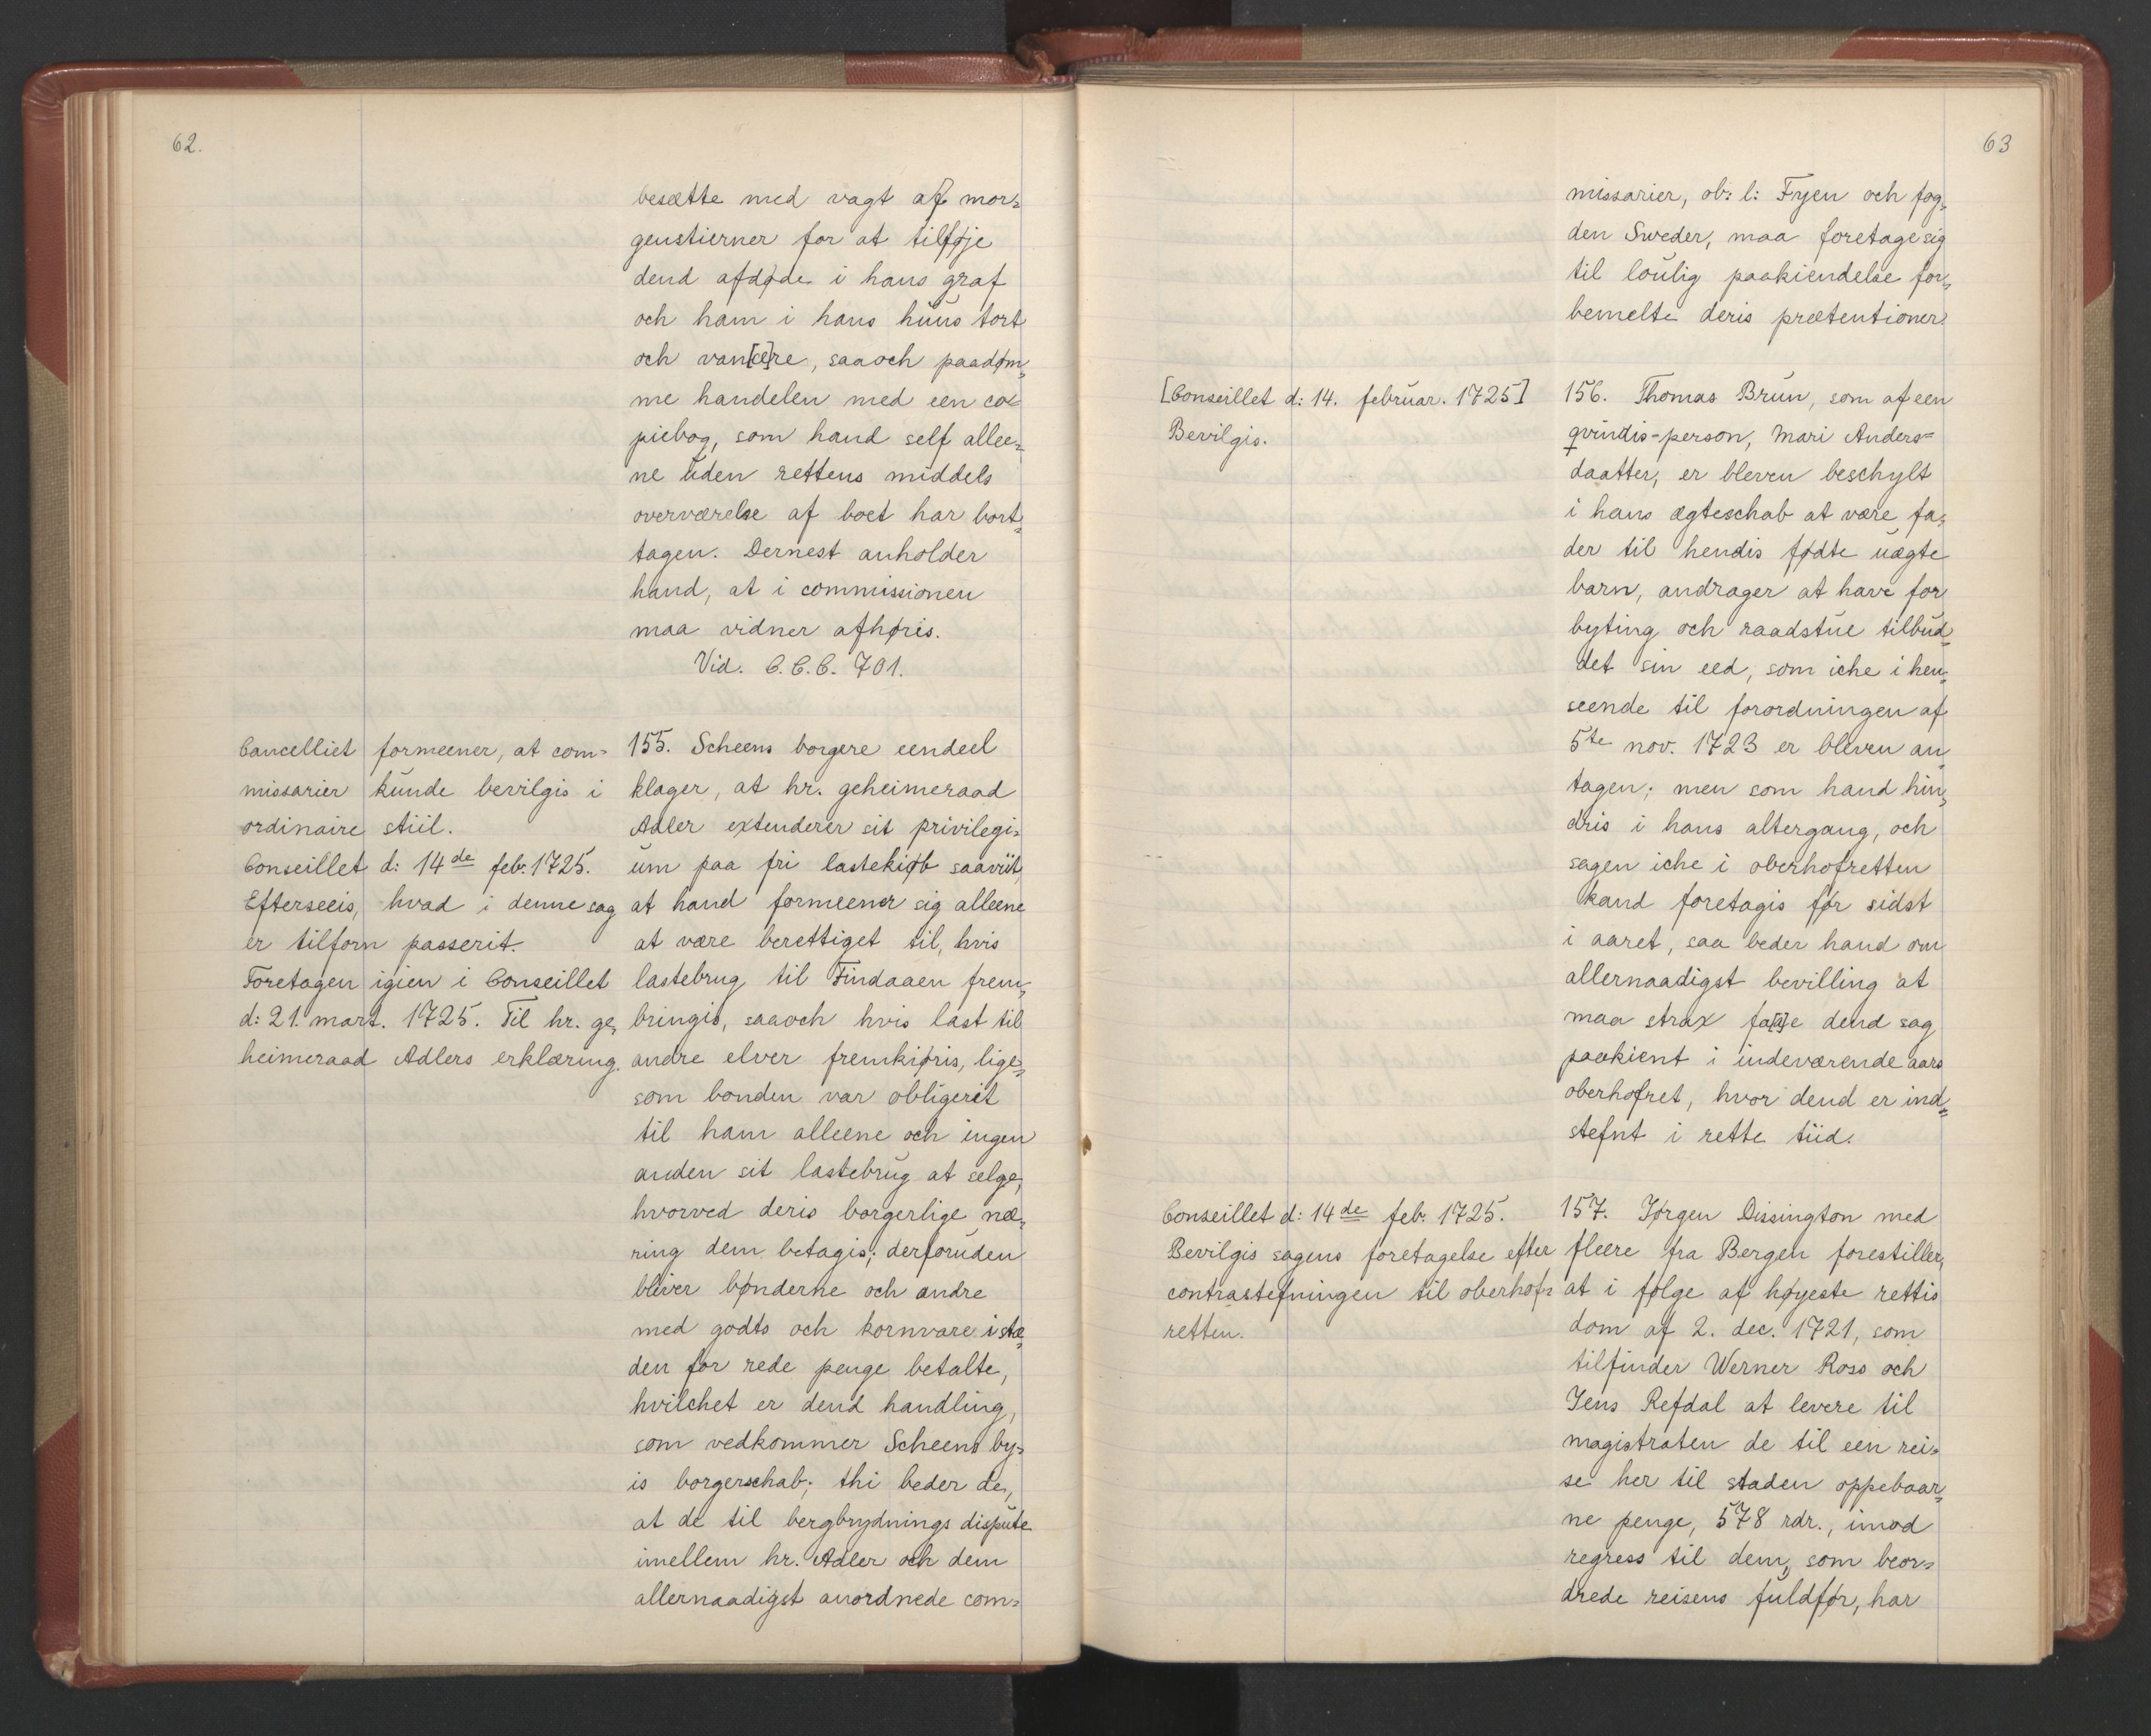 62.
besætte med vagt af mor=
genstierner for at tilføje
dend afdøde i hans graf
och ham i hans huus tort
och van[æ]re, saaoch paadøm=
me handelen med een co=
piebog, som hand self allee=
ne uden rettens middels
overværelse af boet har bort=
tagen. Dernest anholder
hand, at i commissionen
maa vidner afhøris.
Vid. C.C.C. 701.
Cancelliet formeener, at com=
missarier kunde bevilgis i
ordinaire stiil.
Conseillet d: 14de feb. 1725.
Efterseeis, hvad i denne sag
er tilforn passerit.
Foretagen igien i Conseillet
d: 21. mart. 1725. Til hr. ge=
heimeraad Adlers erklæring.
155. Scheens borgere eendeel
klager, at hr. geheimeraad
Adler extenderer sit privilegi=
um paa fri lastekiøb saaviit,
at hand formeener sig alleene
at være berettiget til, hvis
lastebrug til Findaaen frem=
bringis, saaoch hvis last til
andre elver fremkiøris, lige=
som bonden var obligerit
til ham alleene och ingen
anden sit lastebrug at selge,
hvorved deris borgerlige næ=
ring dem betagis; derforuden
bliver bønderne och andre
med godts och kornvare i stæ=
den for rede penge betalte,
hvilchet er dend handling,
som vedkommer Scheens by=
is borgerschab; thi beder de,
at de til bergbrydnings dispute
imellem hr. Adler och dem
allernaadigst anordnede com=
63
missarier, ob: l: Fyen och fog=
den Sweder, maa foretage sig
til loulig paakiendelse for=
bemelte deris prætentioner.
[Conseillet d: 14. februar. 1725]
Bevilgis.
156. Thomas Brun, som af een
qvindis-person, Mari Anders=
daatter, er bleven beschylt
i hans ægteschab at være fa=
der til hendis fødte uægte
barn, andrager at have for
byting och raadstue tilbud=
det sin eed, som iche i hen=
seende til forordningen af
5te nov. 1723 er bleven an=
tagen; men som hand hin=
dris i hans altergang, och
sagen iche i oberhofretten
kand foretagis før sidst
i aaret, saa beder hand om
allernaadigst bevilling at
maa strax fa[a]e dend sag
paakient i indeværende aars
oberhofret, hvor dend er ind=
stefnt i rette tiid.
Conseillet d: 14de feb. 1725.
Bevilgis sagens foretagelse efter
contrastefningen til oberhof=
retten.
157. Jørgen Dissington med
fleere fra Bergen forestiller,
at i følge af høyeste rettis
dom af 2. dec. 1721, som
tilfinder Werner Ross och
Jens Refdal at levere til
magistraten de til een rei=
se her til staden oppebaar=
ne penge, 578 rdr., imod
regress til dem, som beor=
drede reisens fuldfør, har